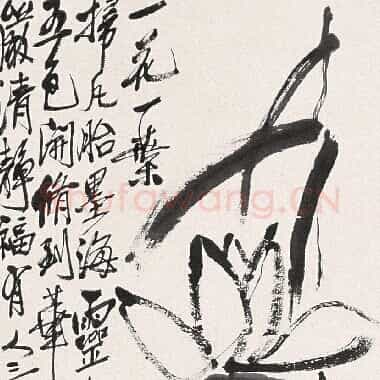 一花一葉
掃凡胎墨海靈
五色開脩到華
嚴清靜福有人三
Shufawang.CN